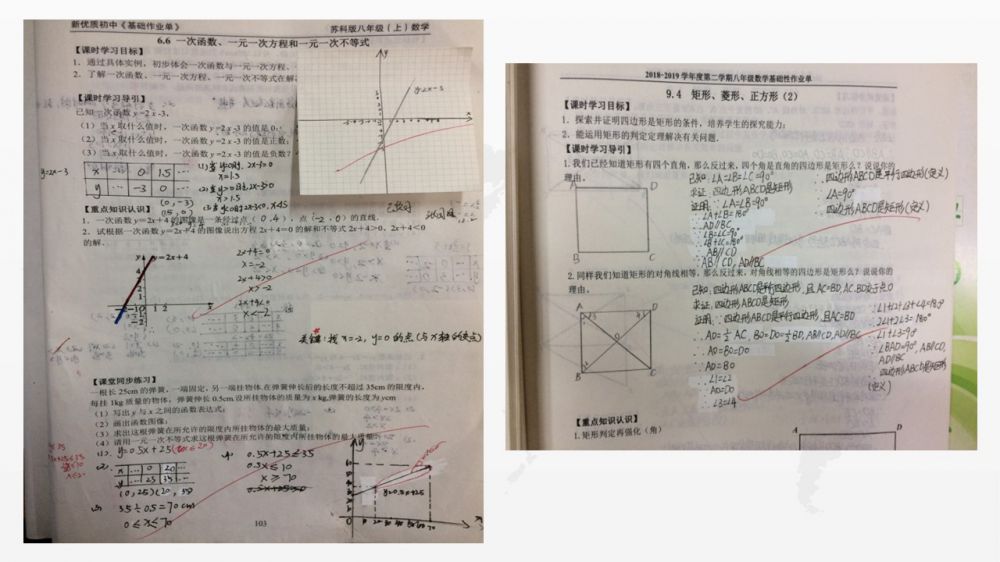 新优质初中《基础作业单》 苏科版八年级（上）数学
6.6 一次函数、一元一次方程和一元一次不等式
【课时学习目标】
1．通过具体实例，初步体会一次函数与一元一次方程、
2．了解一次函数、一元一次方程、一元一次不等式在解
【课时学习导引】
已知一次函数 y=2x-3,
（1）当 x 取什么值时，一次函数 y=2x-3 的值是 0;
（2）当 x 取什么值时，一次函数 y=2x-3 的值是正数;
（3）当 x 取什么值时，一次函数 y=2x-3 的值是负数?
y=2x-3
y
x
y=2x-3
x ... 0 1.5 ...
y ... -3 0 ...
(0,-3)
(1.5,0)
(1)当y=0时, 2x-3=0
x=1.5
(2)当y>0时 2x-3>0
x>1.5
【重点知识认识】
1．一次函数 y=2x+4 的图像是一条经过点（0,4），点（-2,0）的直线.
2．试根据一次函数 y=2x+4 的图像说出方程 2x+4=0 的解和不等式 2x+4>0、2x+4<0
的解.
y=2x+4
2x+4=0
x=-2
2x+4>0
x>-2
2x+4<0
x<-2
关键:找x=-2, y=0的点(与x轴的交点)
【课堂同步练习】
一根长 25cm 的弹簧，一端固定，另一端挂物体.在弹簧伸长后的长度不超过 35cm 的限度内，
每挂 1kg 质量的物体，弹簧伸长 0.5cm.设所挂物体的质量为 x kg,弹簧的长度为 ycm
（1）写出 y 与 x 之间的函数表达式;
（2）画出函数图像;
（3）求出这根弹簧在所允许的限度内所挂物体的最大质量;
（4）请用一元一次不等式求这根弹簧在所允许的限度内所挂物体的最大质量.
(1). y=0.5x+25
(2). x ... 0 20 ...
y ... 25 35 ...
(0,25)(20,35)
(3) 35÷0.5=70cm
0≤x≤70
(4) 0.5x+25≤35
0.5x≤10
x≥70
y=0.5x+25
103
2018-2019 学年度第二学期八年级数学基础性作业单
9.4 矩形、菱形、正方形（2）
【课时学习目标】
1．探索并证明四边形是矩形的条件，培养学生的探究能力;
2．能运用矩形的判定定理解决有关问题.
【课时学习导引】
1.我们已经知道矩形有四个直角，那么反过来，四个角是直角的四边形是矩形么？说说你的
理由。
A D
B C
已知,∠A=∠B=∠C=90°
求证,四边形ABCD是矩形
证明:∵∠A=∠B=90°
∴∠A+∠B=180°
∴AD∥BC
∵∠B=∠C=90°
∴∠B+∠C=180°
∴AB∥CD
∵AB∥CD, AD∥BC
∴四边形ABCD是平行四边形(定义)
∵∠A=90°
∴四边形ABCD是矩形(定义)
2.同样我们知道矩形的对角线相等，那么反过来，对角线相等的四边形是矩形么？说说你的
理由。
A D
O
B C
已知,四边形ABCD是平行四边形,且AC=BD,AC.BD交于点O
求证,四边形ABCD是矩形
证明:∵四边形ABCD是平行四边形,且AC=BD
∴AO=½AC, BO=DO=½BD, AB∥CD, AD∥BC
∴AO=BO=DO
∵AO=BO
∴∠1=∠2
∵AO=DO
∴∠3=∠4
∵∠1+∠2+∠3+∠4=180°
∴2∠1+2∠3=180°
∴∠1+∠3=90°
∴∠BAD=90°
∵AB∥CD,
AD∥BC
∴四边形ABCD是矩形
(定义)
【重点知识认识】
1.矩形判定再强化（角）
A D